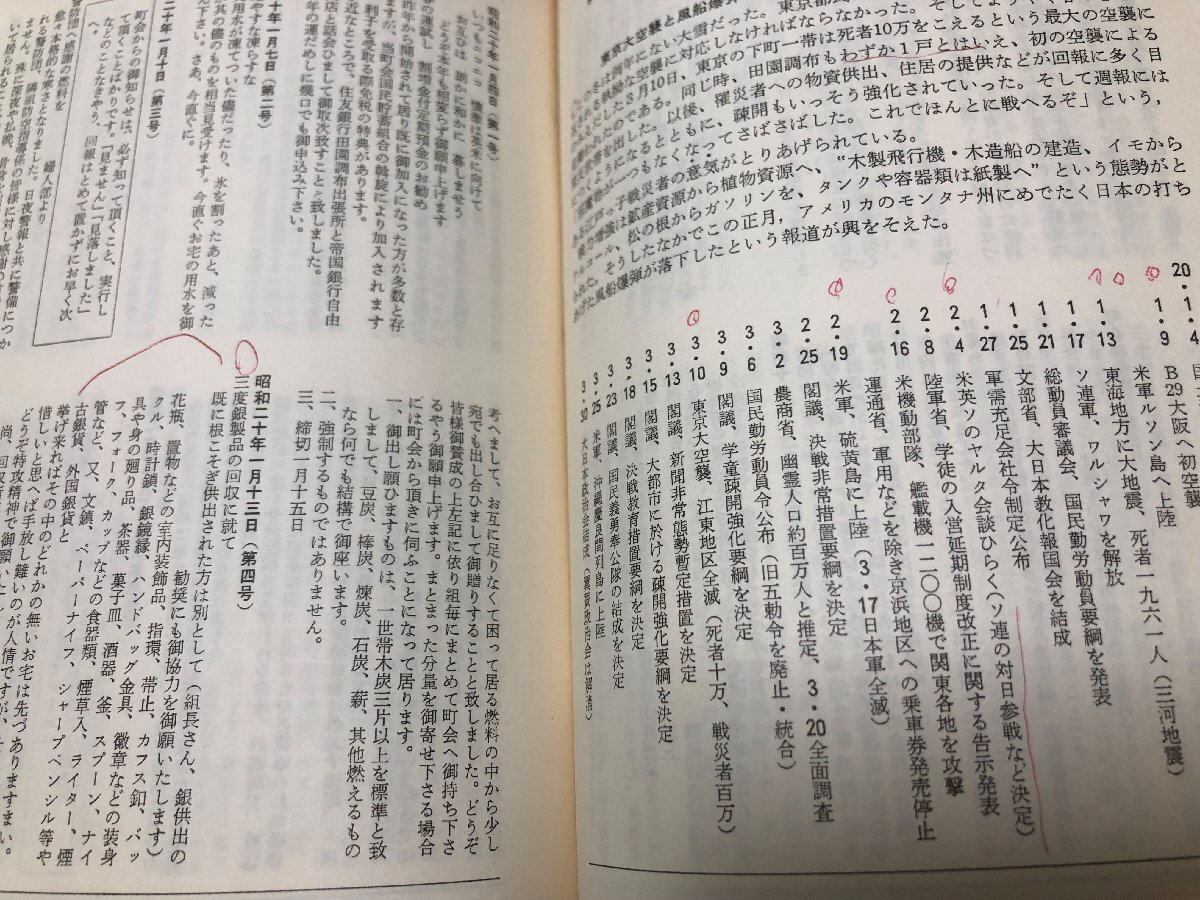 東京大空襲と風船爆弾
のである。同じ時、田園調布もわずか１戸とはいえ、初の空襲による
“木製飛行機・木造船の建造、イモから
松の根からガソリンを、タンクや容器類は紙製へ”という態勢がと
そうしたなかでこの正月、アメリカのモンタナ州にめでたく日本の打ち
あげた風船爆弾が落下したという報道が興をそえた。
20・1・4
1・9 米軍ルソン島へ上陸
1・13 東海地方に大地震、死者一九六一人（三河地震）
1・17 ソ連軍、ワルシャワを解放
1・21 総動員審議会、国民勤労動員要綱を発表
1・25 文部省、大日本教化報国会を結成
1・27 軍需充足会社令制定公布
2・4 米英ソのヤルタ会談ひらく（ソ連の対日参戦など決定）
2・8 陸軍省、学徒の入営延期制度改正に関する告示発表
2・16 米機動部隊、艦載機一二〇〇機で関東各地を攻撃
運通省、軍用などを除き京浜地区への乗車券発売停止
2・19 米軍、硫黄島に上陸（3・17日本軍全滅）
2・25 閣議、決戦非常措置要綱を決定
3・2 農商省、幽霊人口約百万人と推定、3・20全面調査
3・6 国民勤労動員令公布（旧五勅令を廃止・統合）
3・9 閣議、学童疎開強化要綱を決定
3・10 東京大空襲、江東地区全滅（死者十万、戦災者百万）
3・13 閣議、新聞非常態勢暫定措置を決定
3・15 閣議、大都市に於ける疎開強化要綱を決定
3・18 閣議、決戦教育措置要綱を決定
3・23 閣議、国民義勇奉公隊の結成を決定
3・25 米軍、沖縄慶良間列島に上陸
3・30 大日本政治会結成（翼賛政治会は解消）
昭和二十年一月四日（第一号）
どうぞ本年も相変らず御願申上げます
の運試し 割増金付定期預金のお勧め
昨年から開始されて居り既に御加入になった方が多数と存
が、当町会国民貯蓄組合の斡旋により加入されます
利子を受取る際免税の特典があります。
近なところで、住友銀行田園調布出張所と帝国銀行自由
店と話会ひまして御取次致すことゝ致しました。
年の運だめしに幾口でも御申込み下さい。
十年一月七日（第二号）
用水が凍てついた儘だったり、氷を割ったあと、減った
其の儘のものを相当見受けます。今直ぐお宅の用水を御
ん下さい。さあ、今直ぐに。
二十年一月十日（第三号）
町会からの御知らせは、必ず知って頂くこと、実行し
て頂くことばかりです。「見ません」「見落しました」
などのことなきやう、回報はとめて置かずにお早く次
防団へ感謝の燃料を
婦人部より
愈々本格的な寒さとなりました。日夜警報と共に警備につか
考へまして、お互に足りなくて困って居る燃料の中から少し
宛でも出し合ひまして御贈りすることと致しました。どうぞ
皆様御賛成の上左記に依り組毎にまとめて町会へ御持ち下さ
るやう御願申上げます。まとまった分量を御寄せ下さる場合
には町会から頂きに伺ふことになって居ります。
一、御出し願ひますものは、一世帯木炭三片以上を標準と致
しまして、豆炭、棒炭、煉炭、石炭、薪、其他燃えるもの
なら何でも結構で御座います。
二、強制するものではありません。
三、締切 一月十五日
昭和二十年一月十三日（第四号）
三度銀製品の回収に就て
既に根こそぎ供出された方は別として（組長さん、銀供出の
勧奨にも御協力を御願いたします）
花瓶、置物などの室内装飾品、指環、帯止、カフス釦、バッ
クル、時計鎖、銀鏡縁、ハンドバッグ金具、徽章などの装身
具や身の廻り品、茶器、菓子皿、酒器、釜、スプーン、ナイ
フ、フォーク、カップなどの食器類、煙草入、ライター、煙
管など、又、文鎮、ペーパーナイフ、シャープペンシル等や
古銀貨、外国銀貨と
挙げ来ればその中のどれかの無いお宅は先づありますまい。
惜しいと思へば手放し難いのが人情ですが、
どうぞ特攻精神で御願いたし